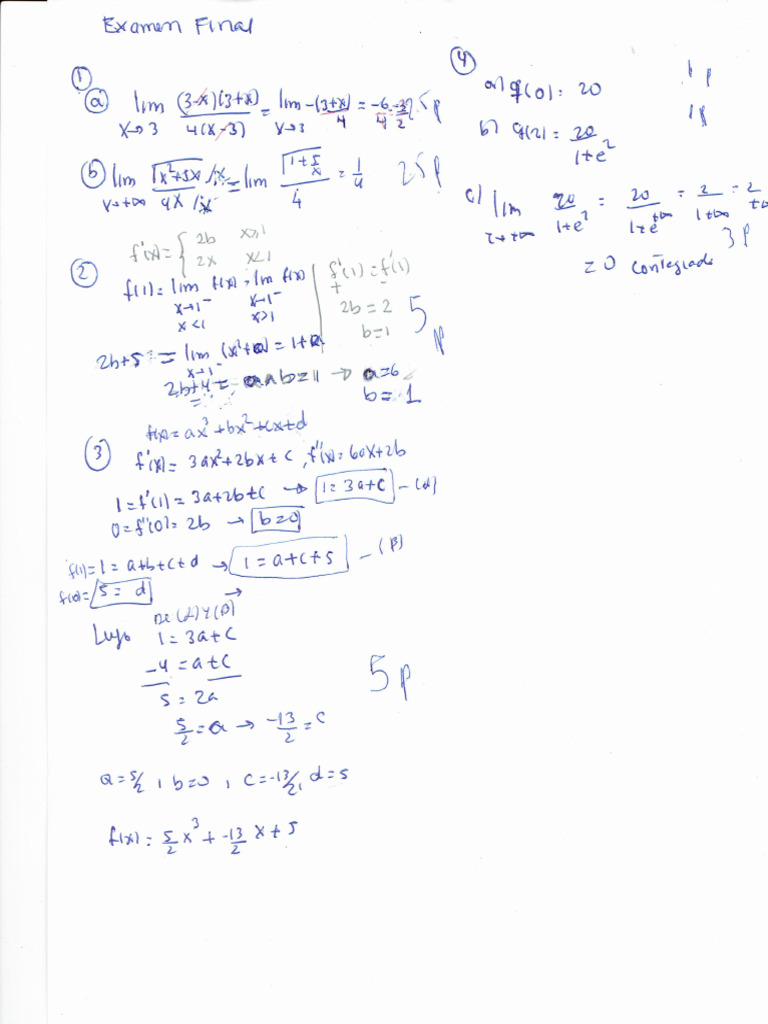 Examen Final
①
ⓐ lim x→3 (3-x)(3+x) / 4(x-3) = lim x→3 -(3+x) / 4 = -6/4 = -3/2 25p
ⓑ lim x→+∞ √(x²+5x) /x / 4x /x = lim √(1+5/x) / 4 = 1/4 25p
f'(x) = { 2b x≥1
2x x<1
②
f(1) = lim x→1⁻ x<1 f(x) = lim x→1⁻ x>1 f(x)
2b+5 = lim x→1⁻ (x²+a) = 1+a
2b+4 = a ∧ b=1 → a=6
b = 1
f'₊(1) = f'₋(1)
2b = 2
b=1
5p
③
f(x) = ax³+bx²+cx+d
f'(x) = 3ax²+2bx+c , f''(x) = 6ax+2b
1 = f'(1) = 3a+2b+c → 1=3a+c -(α)
0 = f''(0) = 2b → b=0
f(1) = 1 = a+b+c+d → 1 = a+c+5 -(β)
f(0) = 5 = d →
De (α) y (β)
Luego 1 = 3a+c
-4 = a+c
5 = 2a
5/2 = a → -13/2 = c
5p
a=5/2 , b=0 , c=-13/2, d=5
f(x) = 5/2 x³ + -13/2 x + 5
④
a) q(0) = 20 1p
b) q(2) = 20 / 1+e² 1p
c) lim = 20 / 1+e^+∞ = 2 / 1+∞ = 2 / +∞
= 0 contagiado 3p